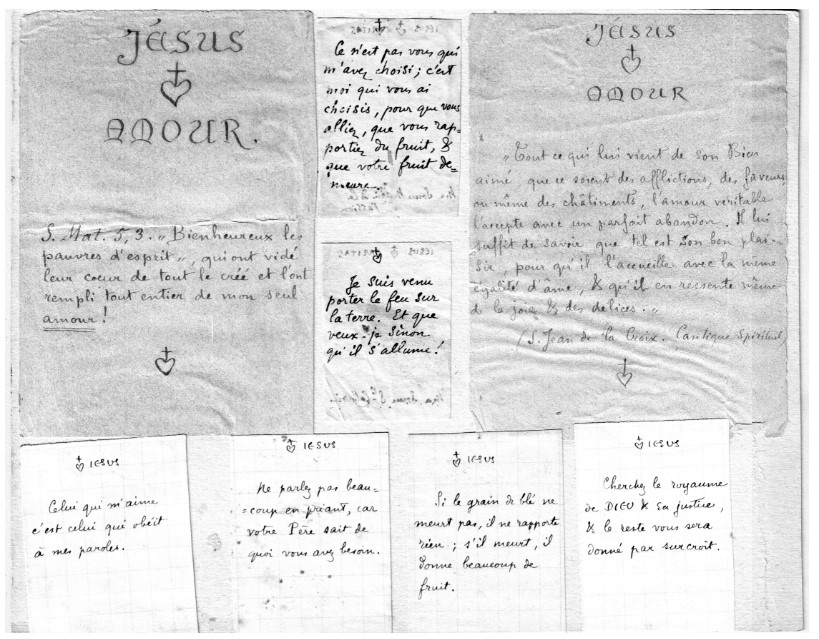 JÉSUS
AMOUR.
S. Mat. 5,3. „Bienheureux les
pauvres d'esprit", qui ont vidé
leur coeur de tout le créé et l'ont
rempli tout entier de mon seul
amour !
Ce n'est pas vous qui
m'avez choisi; c'est
moi qui vous ai
choisis, pour que vous
alliez, que vous rap=
portiez du fruit, &
que votre fruit de=
meure.
Je suis venu
porter le feu sur
la terre. Et que
veux-je sinon
qu'il s'allume!
JÉSUS
AMOUR
„Tout ce qui lui vient de son Bien
aimé, que ce soient des afflictions, des faveurs
ou même des châtiments, l'amour véritable
l'accepte avec un parfait abandon. Il lui
suffit de savoir que tel est Son bon plai-
sir, pour qu'il l'accueille avec la même
égalité d'âme, & qu'il en ressente même
de la joie & des délices."
(S. Jean de la Croix. Cantique Spirituel)
IESUS
Celui qui m'aime
c'est celui qui obéit
à mes paroles.
IESUS
Ne parlez pas beau=
=coup en priant, car
votre Père sait de
quoi vous avez besoin.
IESUS
Si le grain de blé ne
meurt pas, il ne rapporte
rien ; s'il meurt, il
donne beaucoup de
fruit.
IESUS
Cherchez le royaume
de DIEU & sa justice,
& le reste vous sera
donné par surcroît.